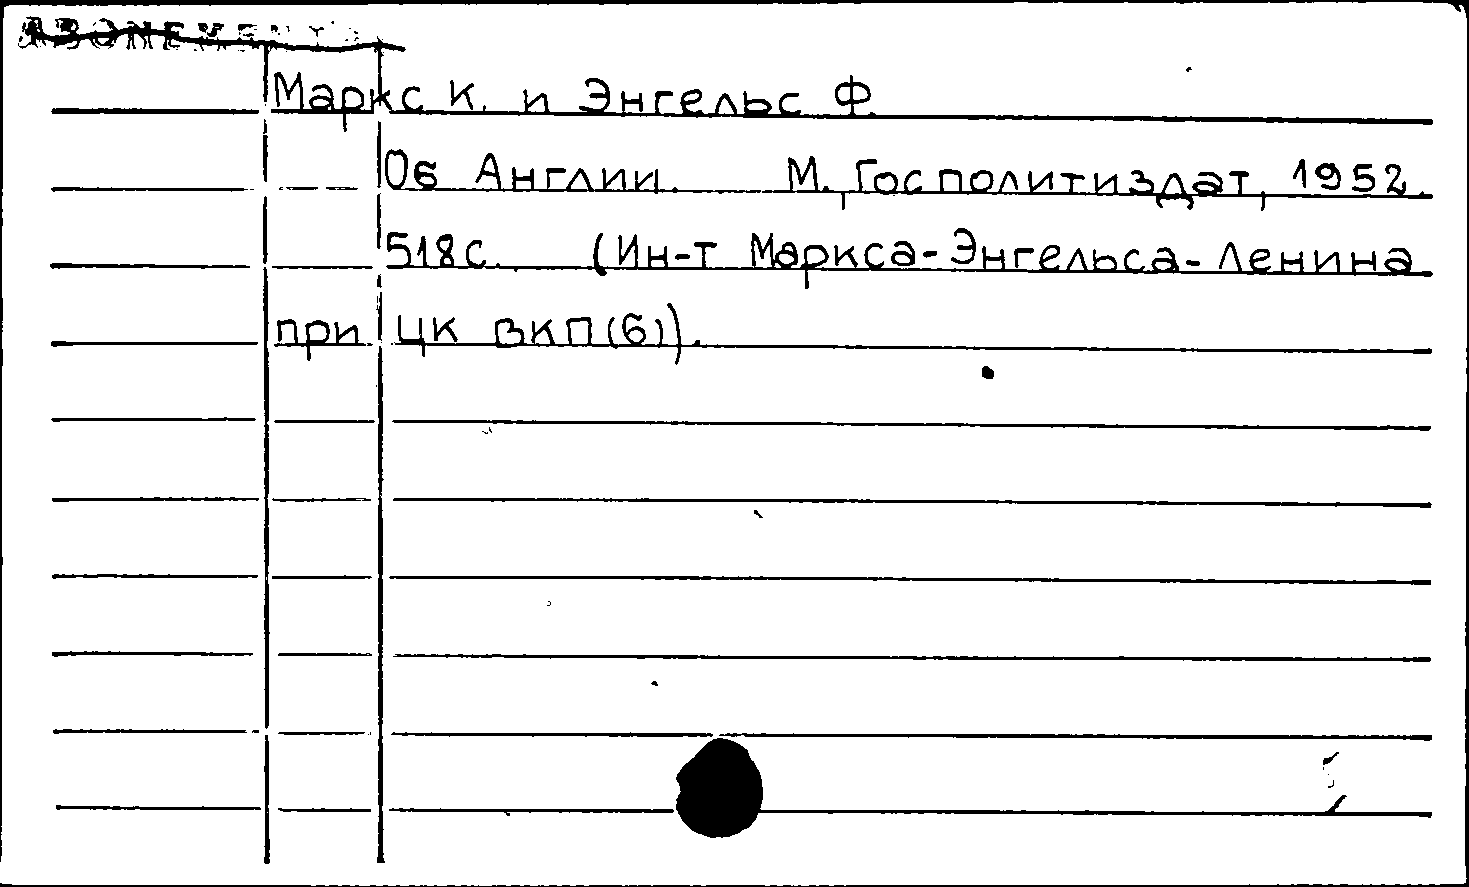 Маркс К. и Энгельс Ф.
Об Англии. М., Госполитиздат, 1952.
518с. (Ин-т Маркса-Энгельса-Ленина
при ЦК ВКП(б)).